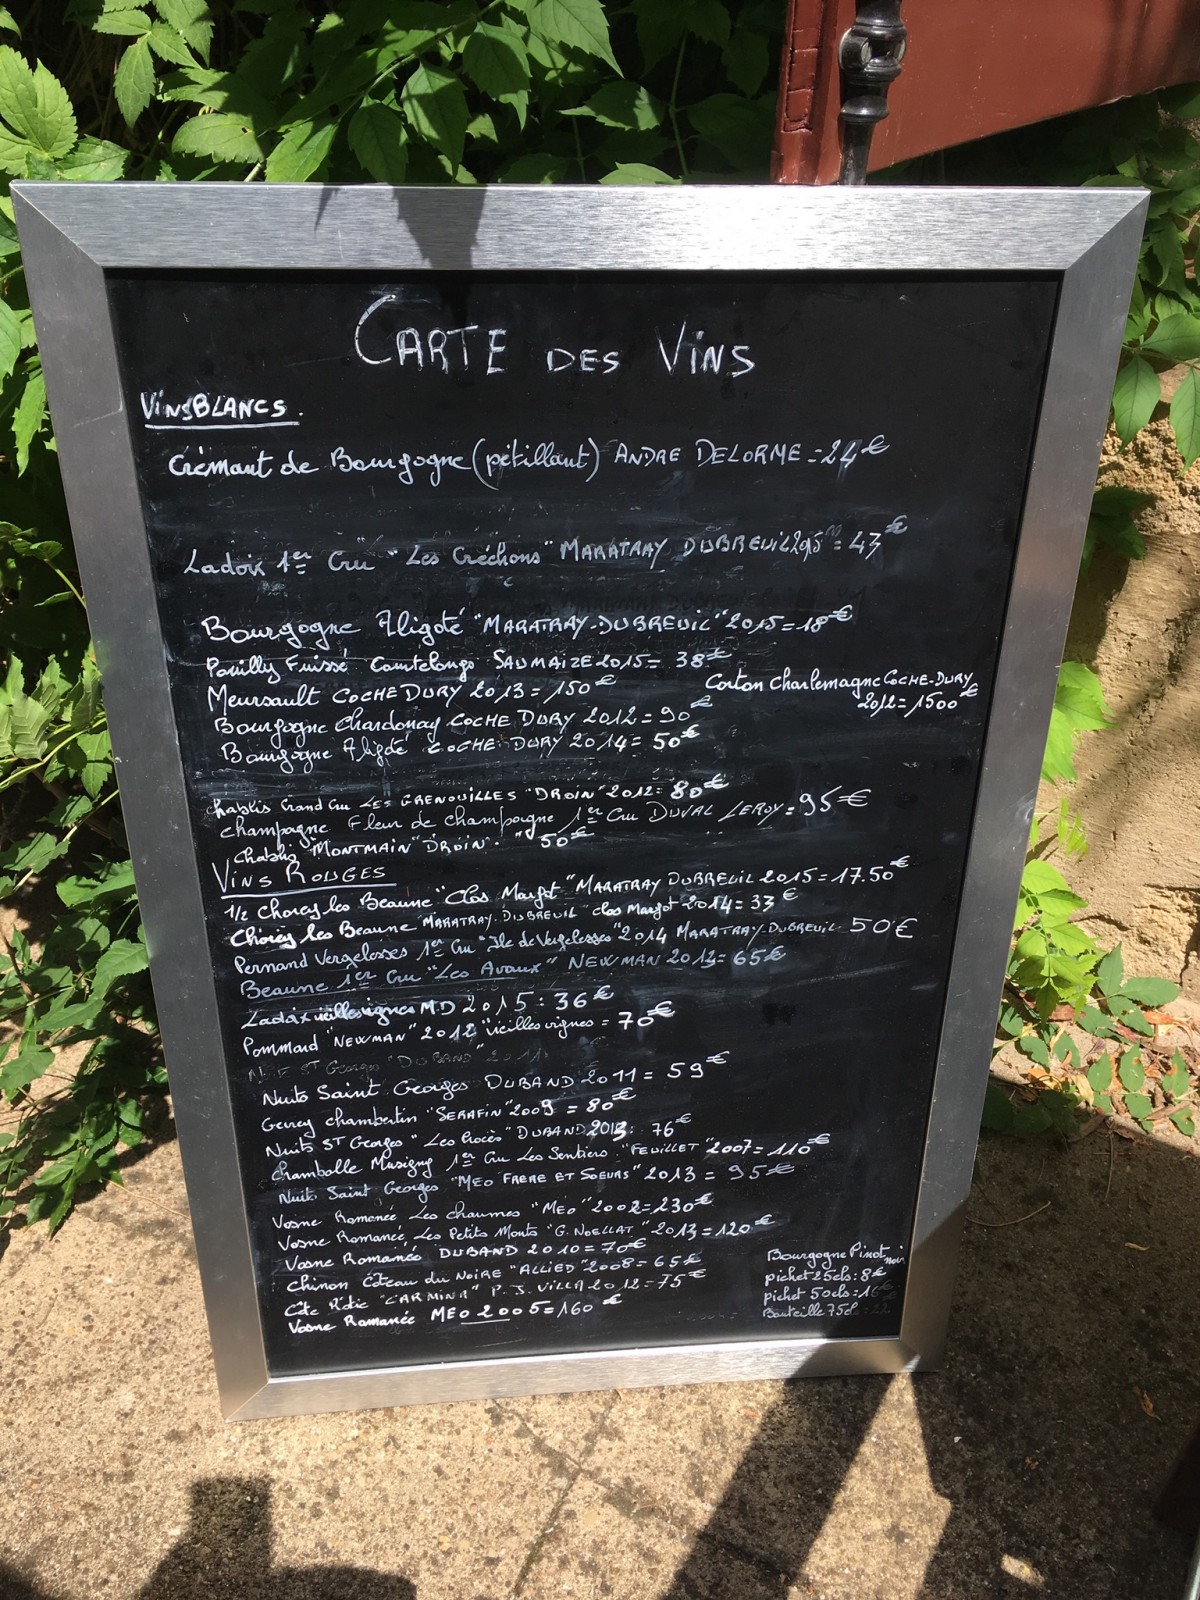 CARTE DES VINS
VINS BLANCS.
Crémant de Bourgogne (pétillant) ANDRE DELORME = 24€
Ladoix 1er Cru "Les Gréchons" MARATRAY DUBREUIL 2015 = 43€
Bourgogne Aligoté "MARATRAY-DUBREUIL" 2015 = 18€
Pouilly Fuissé Courtelongs SAUMAIZE 2015 = 38€
Corton Charlemagne COCHE-DURY
2012 = 1500€
Meursault COCHE DURY 2013 = 150€
Bourgogne Chardonay COCHE DURY 2012 = 90€
Bourgogne Aligoté COCHE DURY 2014 = 50€
Chablis Grand Cru LES GRENOUILLES "DROIN" 2012 = 80€
Champagne Fleur de champagne 1er Cru DUVAL LEROY = 95€
Chablis "MONTMAIN" DROIN. " 50€
VINS ROUGES
1/2 Chorey les Beaune "Clos Margot" MARATRAY DUBREUIL 2015 = 17.50€
Chorey les Beaune "MARATRAY-DUBREUIL" clos Margot 2014 = 33€
Pernand Vergelesses 1er Cru "Ile de Vergelesses" 2014 MARATRAY-DUBREUIL 50€
Beaune 1er Cru "Les Avaux" NEWMAN 2013 = 65€
Ladoix vieilles vignes M-D 2015 : 36€
Pommard "NEWMAN" 2012 "vieilles vignes = 70€
Nuits ST Georges "DUBAND" 2011
Nuits Saint Georges DUBAND 2011 = 59€
Gevrey chambertin "SERAFIN" 2009 = 80€
Nuits ST Georges "Les Procès" DUBAND 2013 : 76€
Chambolle Musigny 1er Cru Les Sentiers "FEUILLET" 2007 = 110€
Nuits Saint Georges "MEO FRERE ET SOEURS" 2013 = 95€
Vosne Romanée Les chaumes "MEO" 2002 = 230€
Vosne Romanée Les Petits Monts "G. NOELLAT" 2013 = 120€
Vosne Romanée DUBAND 2010 = 70€
Chinon Côteau du NOIRE "ALLIED" 2008 = 65€
Côte Rôtie "CARMINA" P. J. VILLA 2012 = 75€
Vosne Romanée MEO 2005 = 160€
Bourgogne Pinot noir
pichet 25cls : 8€
pichet 50cls : 16€
Bouteille 75cl : 22